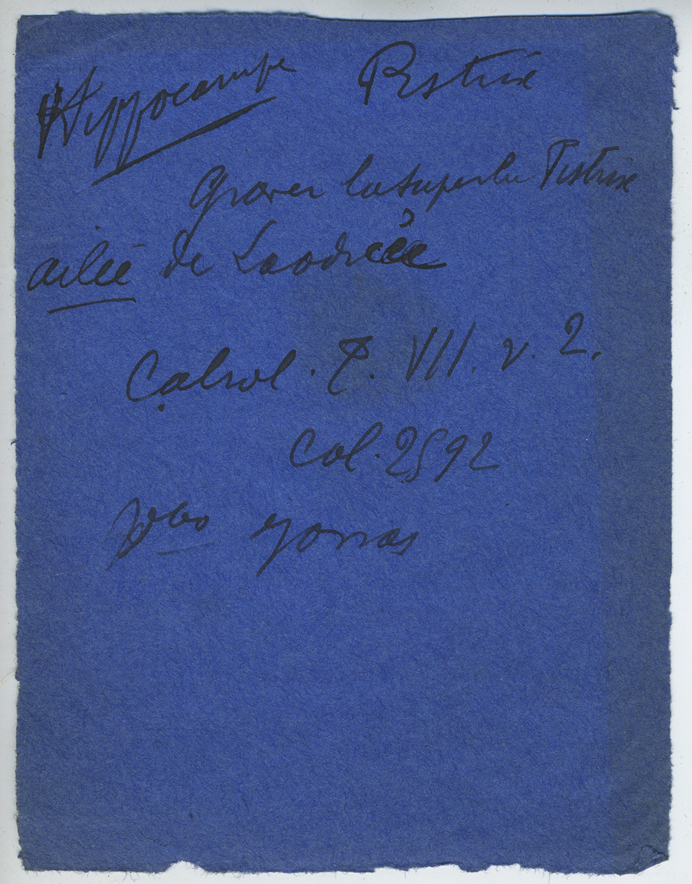 Hippocampe Pistrix
Graver la superbe Pistrix
ailée de Laodicée
Cabrol. T. VII. v. 2.
Col. 2592
Jonas